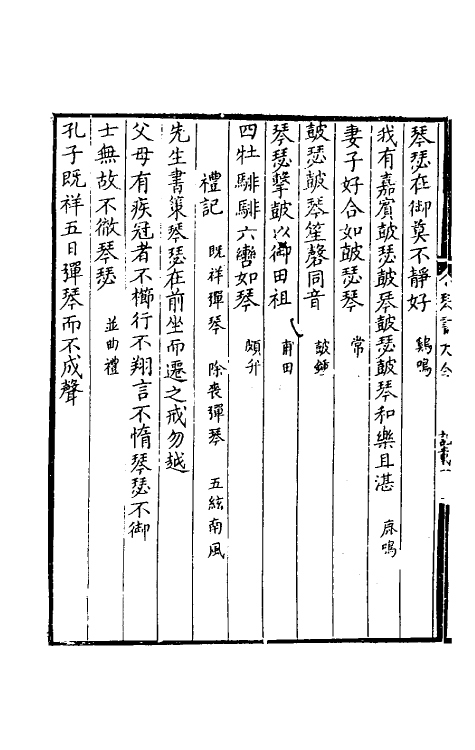 琴瑟在御莫不靜好 鷄鳴
我有嘉賓皷瑟皷琴皷瑟皷琴和樂且湛 鹿鳴
妻子好合如皷瑟琴 常
皷瑟皷琴笙磬同音 皷鍾
琴瑟擊皷以御田祖 甫田
四牡騑騑六轡如琴 頍弁
禮記 既祥彈琴 除喪彈琴 五絃南風
先生書策琴瑟在前坐而遷之戒勿越
父母有疾冠者不櫛行不翔言不惰琴瑟不御
士無故不徹琴瑟 並曲禮
孔子既祥五日彈琴而不成聲